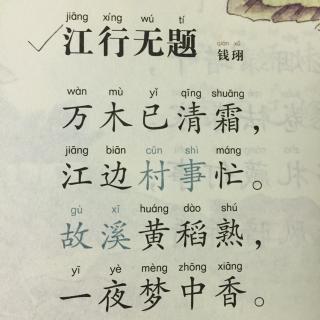 jiāng xíng wú tí
江行无题
qián xǔ
钱珝
wàn mù yǐ qīng shuāng
万木已清霜，
jiāng biān cūn shì máng
江边村事忙。
gù xī huáng dào shú
故溪黄稻熟，
yī yè mèng zhōng xiāng
一夜梦中香。